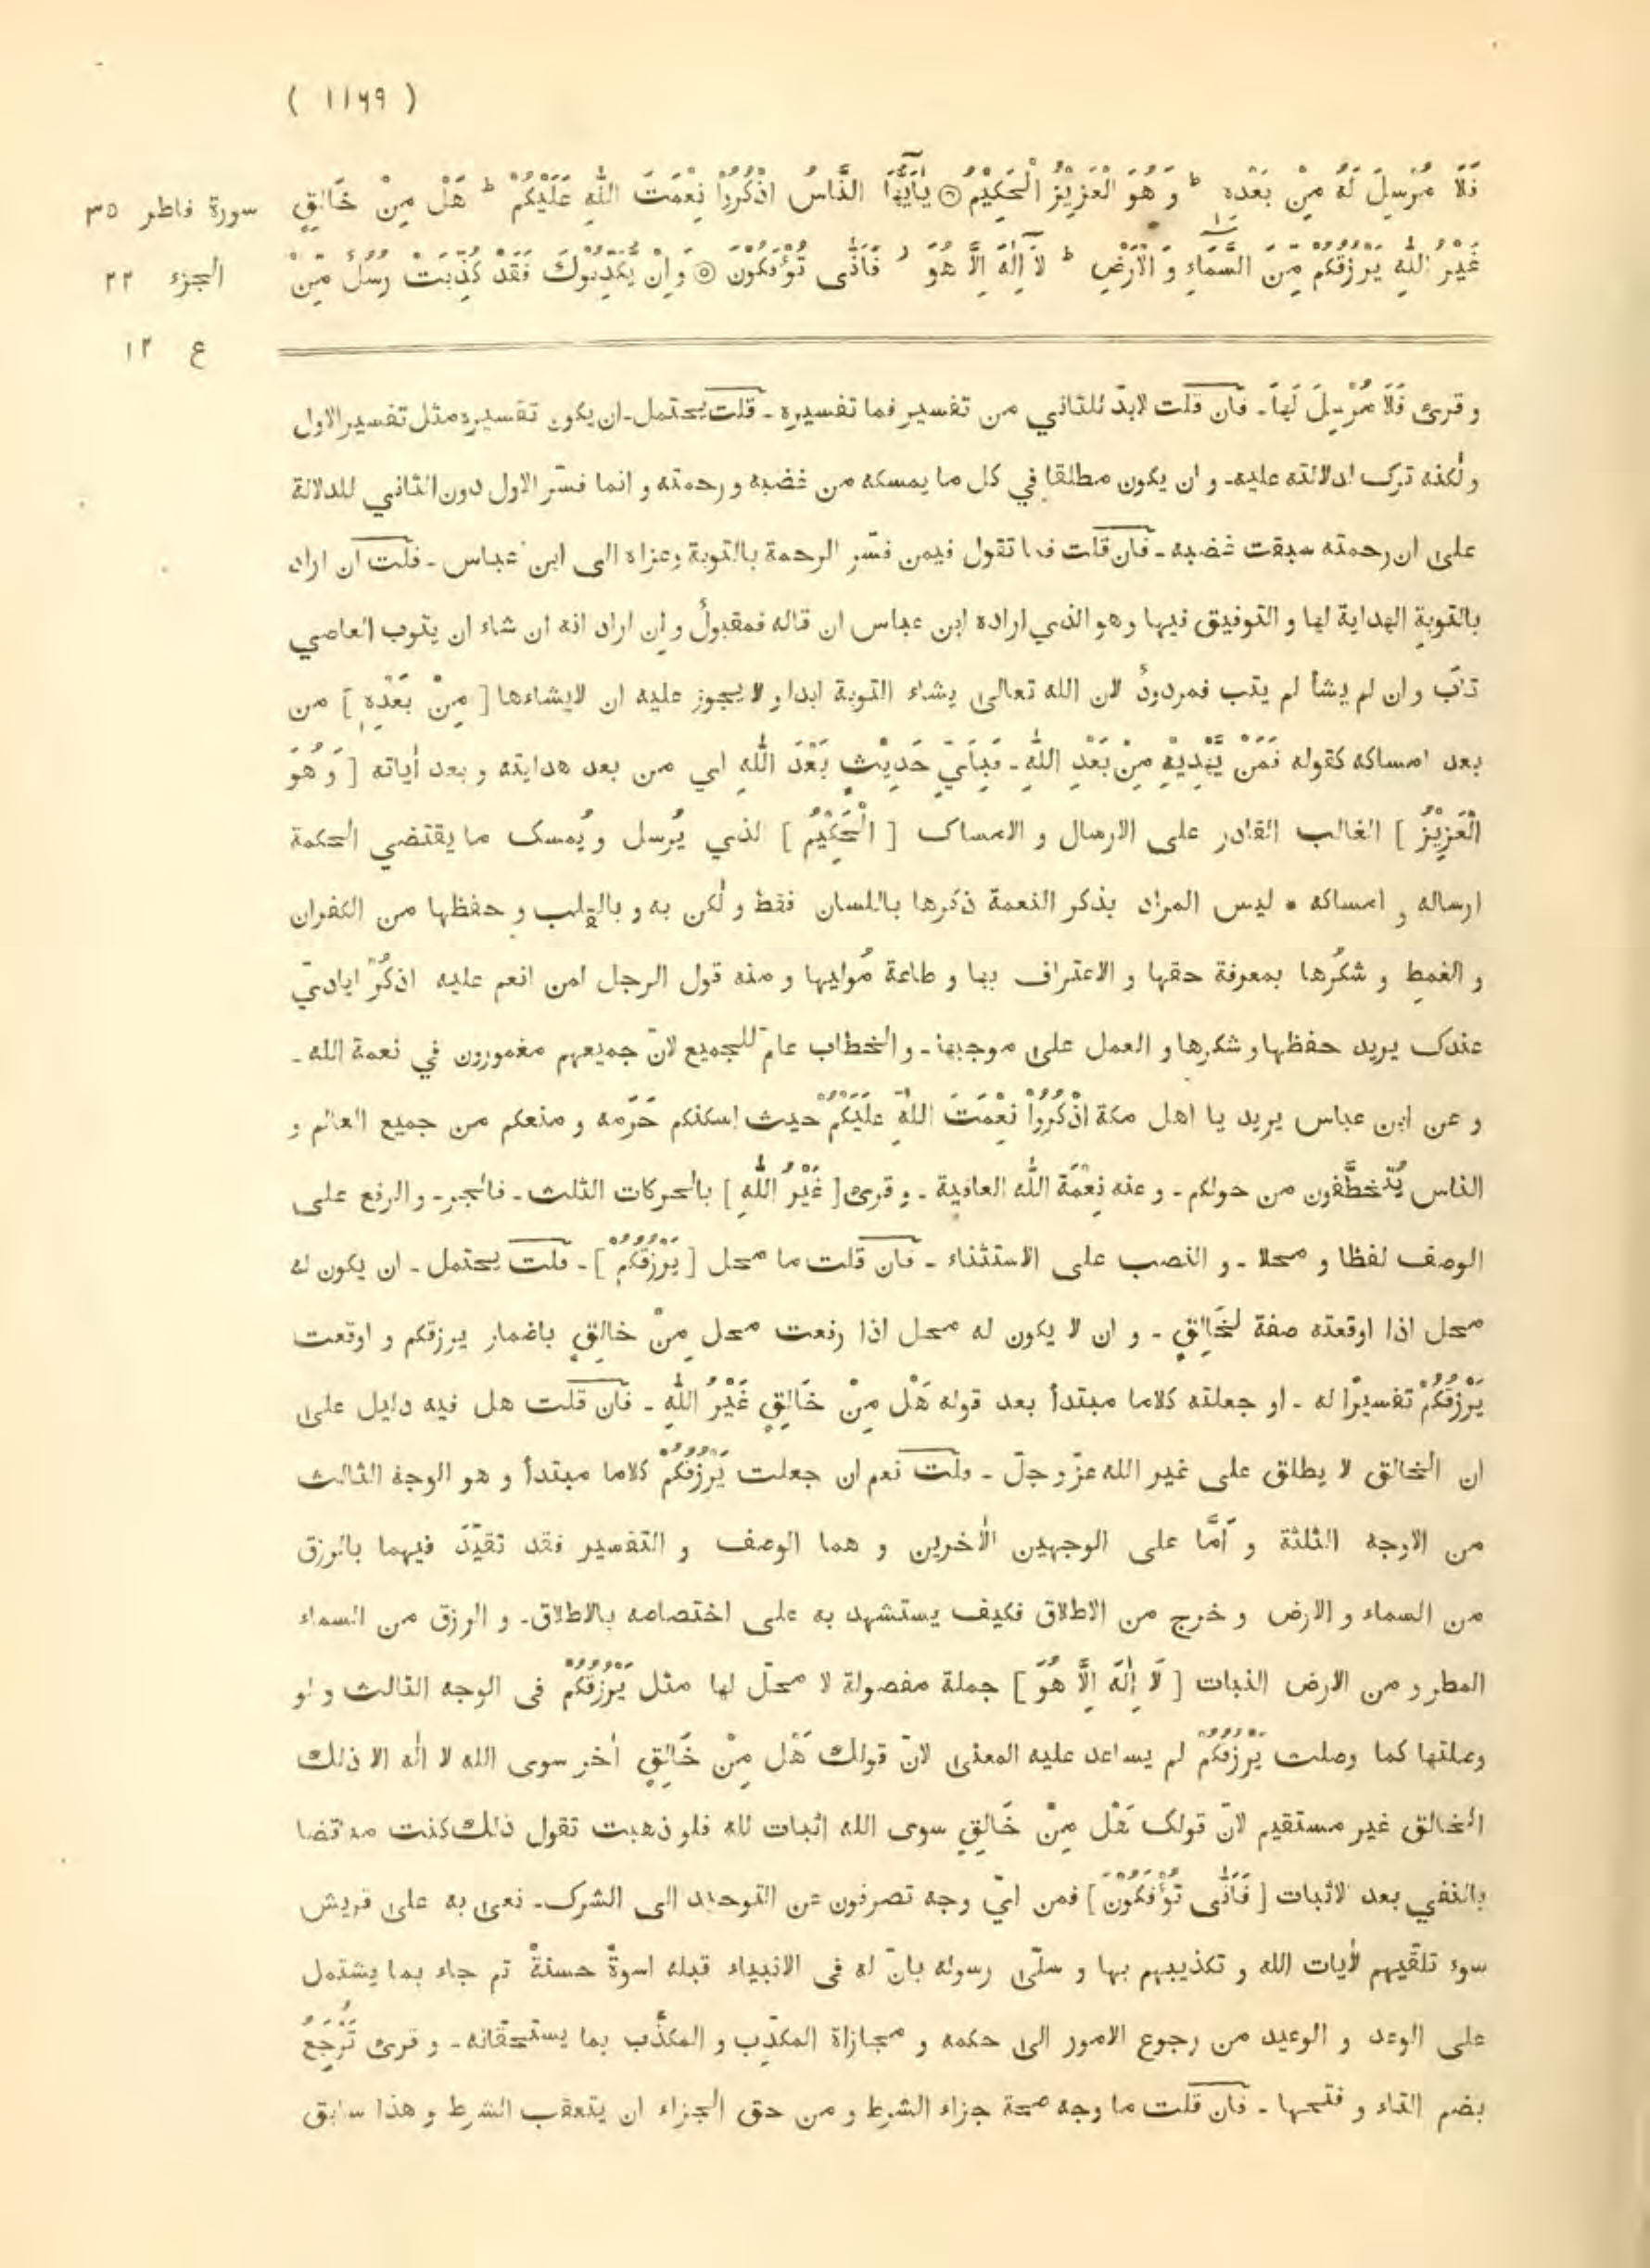 ( ١١٦٩ )
فَلَا مُرْسِلَ لَهُ مِنْ بَعْدِهِ ط وَ هُوَ الْعَزِيْزُ الْحَكِيْمُ ○ يٰٓاَيُّهَا النَّاسُ اذْكُرُوْا نِعْمَتَ اللّٰهِ عَلَيْكُمْ ط هَلْ مِنْ خَالِقٍ
سورة فاطر ٣٥
غَيْرُ اللّٰهِ يَرْزُقُكُمْ مِّنَ السَّمَاءِ وَ الْاَرْضِ ط لَآ اِلٰهَ اِلَّا هُوَ ز فَاَنّٰى تُؤْفَكُوْنَ ○ وَ اِنْ يُّكَذِّبُوْكَ فَقَدْ كُذِّبَتْ رُسُلٌ مِّنْ
الجزء ٢٢
ع ١٣
و قرئ فَلَا مُرْسِلَ لَهَا ـ فان قلت لابدّ للثاني من تفسير فما تفسيره ـ قلت يحتمل ـ ان يكون تفسيره مثل تفسير الاول
و لٰكنه ترك لدلالته عليه ـ و ان يكون مطلقا في كل ما يمسكه من غضبه و رحمته و انما فسّر الاول دون الثاني للدلالة
على ان رحمته سبقت غضبه ـ فان قلت فما تقول فيمن فسّر الرحمة بالتوبة وعزاه الى ابن عباس ـ قلت ان اراد
بالتوبة الهداية لها و التوفيق فيها و هو الذي اراده ابن عباس ان قاله فمقبولٌ و ان اراد انه ان شاء ان يتوب العاصي
تابَ و ان لم يشأ لم يتب فمردودٌ لان الله تعالى يشاء التوبة ابدا و لا يجوز عليه ان لايشاءها [ مِنْ بَعْدِهِ ] من
بعد امساكه كقوله فَمَنْ يَّهْدِيْهِ مِنْ بَعْدِ اللّٰهِ ـ فَبِاَيِّ حَدِيْثٍ بَعْدَ اللّٰهِ اي من بعد هدايته و بعد اٰياته [ وَ هُوَ
الْعَزِيْزُ ] الغالب القادر على الارسال و الامساك [ الْحَكِيْمُ ] الذي يُرسل و يُمسك ما يقتضي الحكمة
ارساله و امساكه * ليس المراد بذكر النعمة ذكرها باللسان فقط و لٰكن به و بالقلب و حفظها من الكفران
و الغمط و شكرُها بمعرفة حقها و الاعتراف بها و طاعة مُوليها و منه قول الرجل لمن انعم عليه اذكُرْ اياديّ
عندك يريد حفظها و شكرها و العمل على موجبها ـ و الخطاب عامّ للجميع لانّ جميعهم مغمورون في نعمة الله ـ
و عن ابن عباس يريد يا اهل مكة اذْكُرُوْا نِعْمَتَ اللّٰهِ عَلَيْكُمْ حيث اسكنكم حَرَمه و منعكم من جميع العالم و
الناس يُتَخطَّفون من حولكم ـ و عنه نِعْمَة الله العافية ـ و قرئ [ غَيْرُ اللّٰهِ ] بالحركات الثلث ـ فالجر ـ و الرفع على
الوصف لفظا و محلا ـ و النصب على الاستثناء ـ فان قلت ما محل [ يَرْزُقُكُمْ ] ـ قلت يحتمل ـ ان يكون له
محل اذا اوقعته صفة لِخَالِقٍ ـ و ان لا يكون له محل اذا رفعت محل مِنْ خالِقٍ باضمار يرزقكم و اوقعت
يَرْزُقُكُمْ تفسيرًا له ـ او جعلته كلاما مبتدأ بعد قوله هَلْ مِنْ خَالِقٍ غَيْرُ اللّٰهِ ـ فان قلت هل فيه دليل على
ان الخالق لا يطلق على غير الله عزّ و جلّ ـ قلت نعم ان جعلت يَرْزُقُكُمْ كلاما مبتدأ و هو الوجه الثالث
من الاوجه الثلثة و اَمَّا على الوجهين الاٰخرين و هما الوصف و التفسير فقد تقيّدَ فيهما بالرزق
من السماء و الارض و خرج من الاطلاق فكيف يستشهد به على اختصاصه بالاطلاق ـ و الرزق من السماء
المطر و من الارض النبات [ لَا اِلٰهَ اِلَّا هُوَ ] جملة مفصولة لا محلّ لها مثل يَرْزُقُكُمْ فى الوجه الثالث و لو
وصلتها كما وصلت يَرْزُقُكُمْ لم يساعد عليه المعنى لانّ قولك هَلْ مِنْ خَالِقٍ اٰخر سوى الله لا اله الا ذلك
الخالق غير مستقيم لانّ قولك هَلْ مِنْ خَالِقٍ سوى الله اثبات لله فلو ذهبت تقول ذلك كنت مناقضا
بالنفي بعد الاثبات [ فَاَنّٰى تُؤْفَكُوْنَ ] فمن ايّ وجه تصرفون عن التوحيد الى الشرك ـ نعى به على قريش
سوء تلقّيهم لاٰيات الله و تكذيبهم بها و سلّى رسوله بانّ له فى الانبياء قبله اسوةً حسنةً ثم جاء بما يشتمل
على الوعد و الوعيد من رجوع الامور الى حكمه و مجازاة المكذِّب و المكذَّب بما يستحقّانه ـ و قرئ تُرْجَعُ
بضم التاء و فتحها ـ فان قلت ما وجه صحة جزاء الشرط و من حق الجزاء ان يتعقب الشرط و هذا سابق